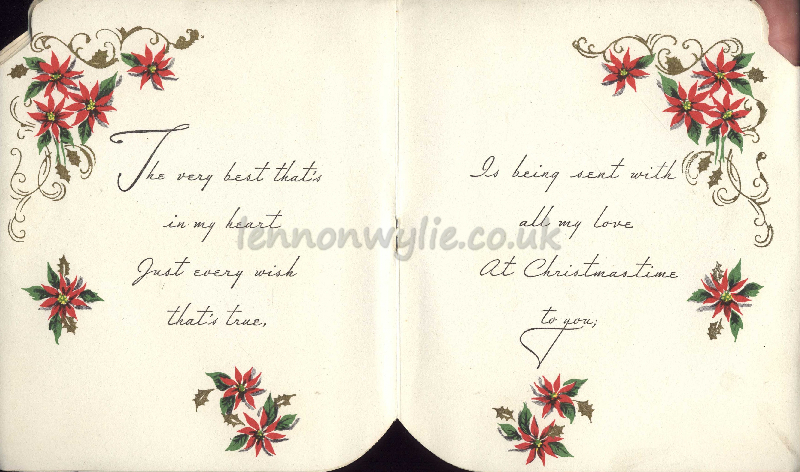 The very best that's
in my heart
Just every wish
that's true,
Is being sent with
all my love
At Christmastime
to you;
lennonwylie.co.uk